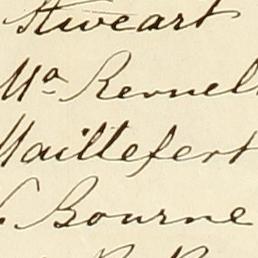 Stweart
Ma. Kernell
Maillefert
Bourne